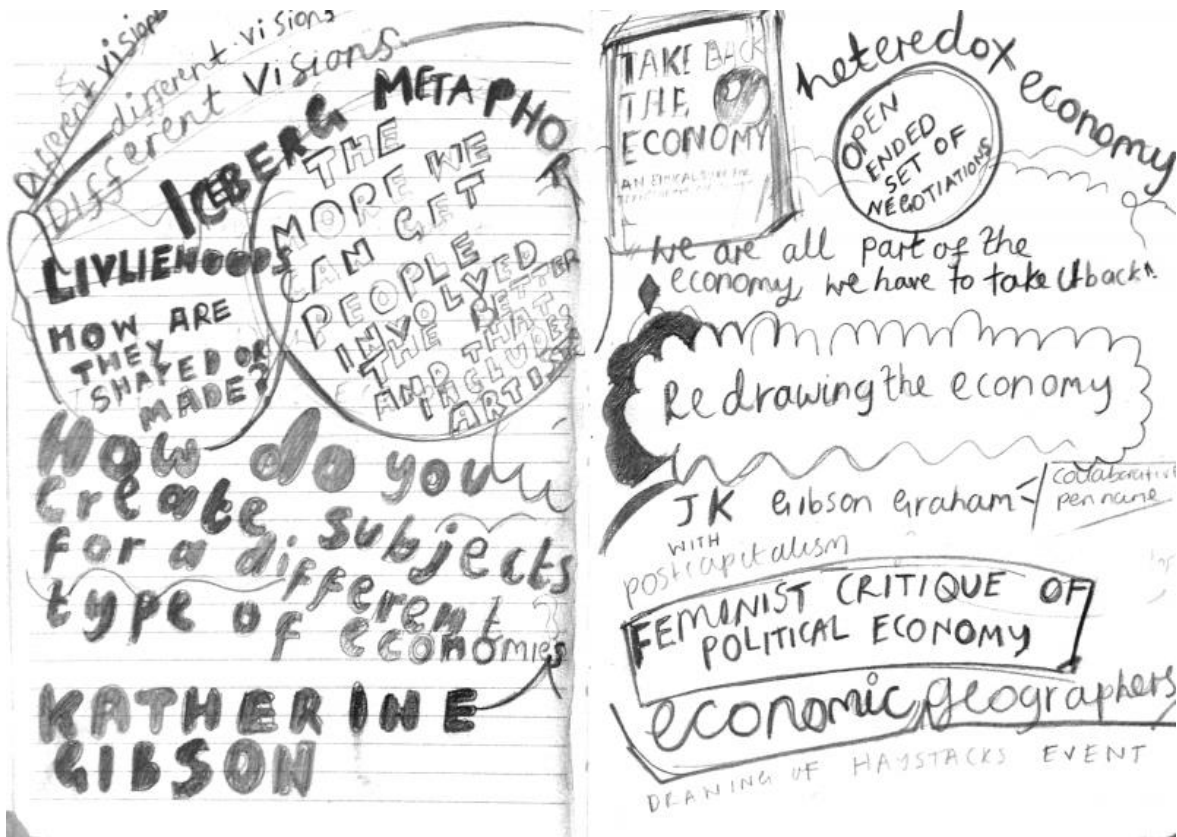 Different visions
different visions
Different visions
ICEBERG METAPHOR
LIVLIEHOODS
HOW ARE
THEY
SHAPED OR
MADE?
THE
MORE WE
CAN GET
PEOPLE
INVOLVED
THE BETTER
AND THAT
INCLUDES
ARTISTS
How do you
create subjects
for a different
type of
economies?
KATHERINE
GIBSON
TAKE BACK
THE
ECONOMY
AN ETHICAL
heteredox economy
OPEN
ENDED
SET OF
NEGOTIATIONS
We are all part of the
economy we have to take it back.
Redrawing the economy
JK Gibson Graham
collaborative
pen name
WITH
postcapitalism
FEMINIST CRITIQUE OF
POLITICAL ECONOMY
economic geographers
DRAWING OF HAYSTACKS EVENT